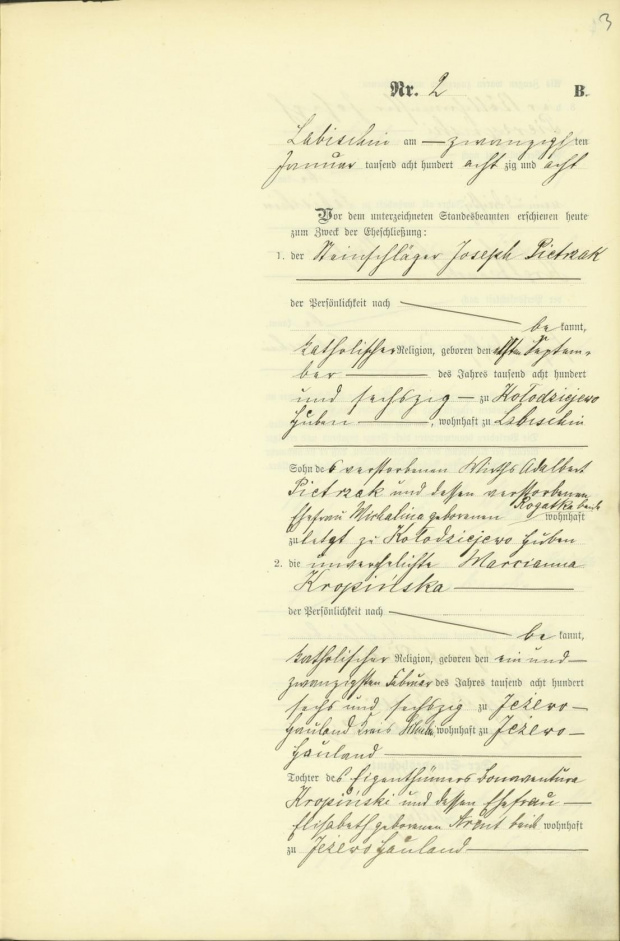 3
Nr. 2 B.
Labischin am zwanzigsten
Januar tausend acht hundert acht zig und acht
Vor dem unterzeichneten Standesbeamten erschienen heute
zum Zweck der Eheschließung:
1. der Steinschläger Joseph Pietrzak
der Persönlichkeit nach
be kannt,
katholischer Religion, geboren den Septem-
ber des Jahres tausend acht hundert
und sechszig zu Kołodziejewo
Huben, wohnhaft zu Labischin
Sohn des verstorbenen Wirths Adalbert
Pietrzak und dessen verstorbenen
Ehefrau Michalina geborenen Rogatka beide wohnhaft
zuletzt zu Kołodziejewo Huben
2. die unverehelichte Marcianna
Kropińska
der Persönlichkeit nach
be kannt,
katholischer Religion, geboren den ein und
zwanzigsten Februar des Jahres tausend acht hundert
sechs und sechszig zu Jeżewo-
Hauland Kreis wohnhaft zu Jeżewo-
Hauland
Tochter des Eigenthümers Bonaventura
Kropiński und dessen Ehefrau
Elisabeth geborenen beide wohnhaft
zu Jeżewo Hauland